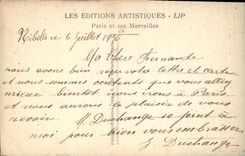 LES EDITIONS ARTISTIQUES - LIP
Paris et ses Merveilles
Nibelle le 6 Juillet 1926
Ma Chère Fernande
nous avons bien reçu votre lettre et carte
et nous sommes contents que vous alliez
mieux bientôt nous irons à Paris
et nous aurons le plaisir de vous
revoir. M. Duchange se joint à
moi pour bien vous embrasser
E. Duchange